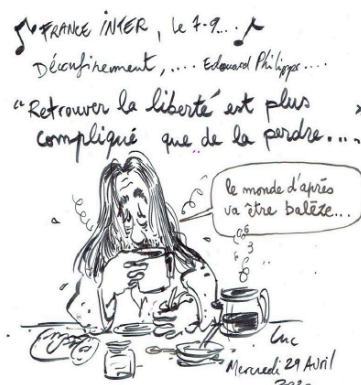 FRANCE INTER, le 7-9...
Déconfinement,.... Edouard Philippe....
"Retrouver la liberté est plus
compliqué que de la perdre....
le monde d'après
va être balèze...
Luc
Mercredi 29 Avril